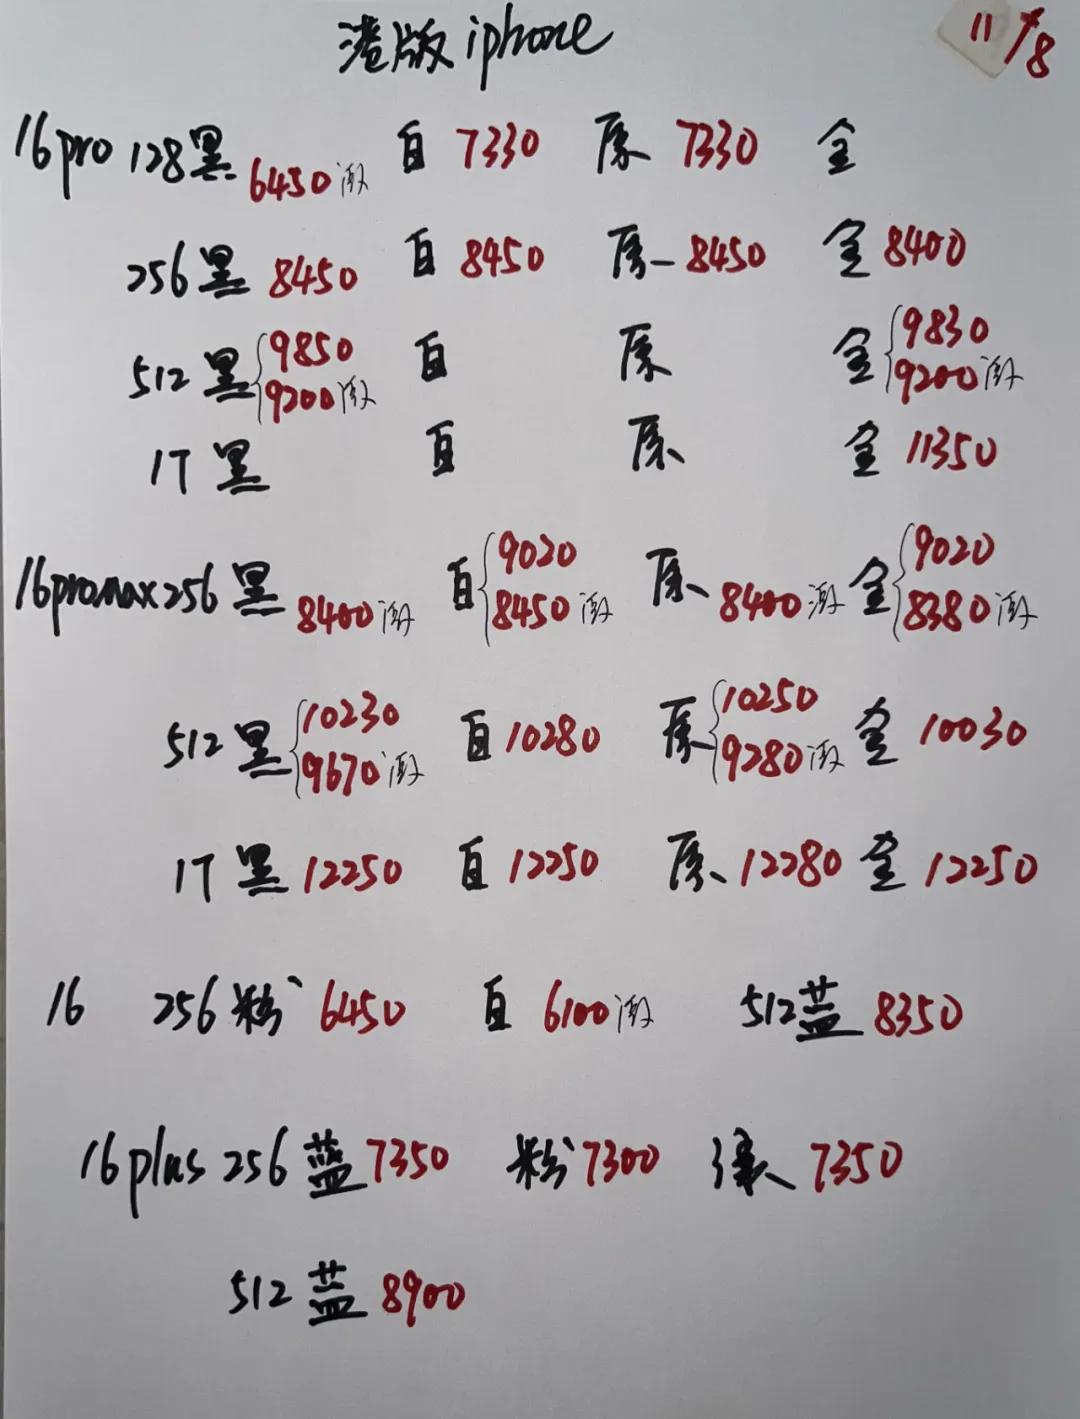 港版iphone 11/8
16pro 128黑 6450激 白 7330 原 7330 金
256黑 8450 白 8450 原 8450 金 8400
512黑 9850 9200激 白 原 金 9830 9200激
1T黑 白 原 金 11350
16promax256黑 8400激 白 9020 8450激 原 8400激 金 9020 8380激
512黑 10230 9670激 白 10280 原 10250 9280激 金 10030
1T黑 12250 白 12250 原 12280 金 12250
16 256粉 6450 白 6100激 512蓝 8350
16plus 256蓝 7350 粉 7300 绿 7350
512蓝 8900